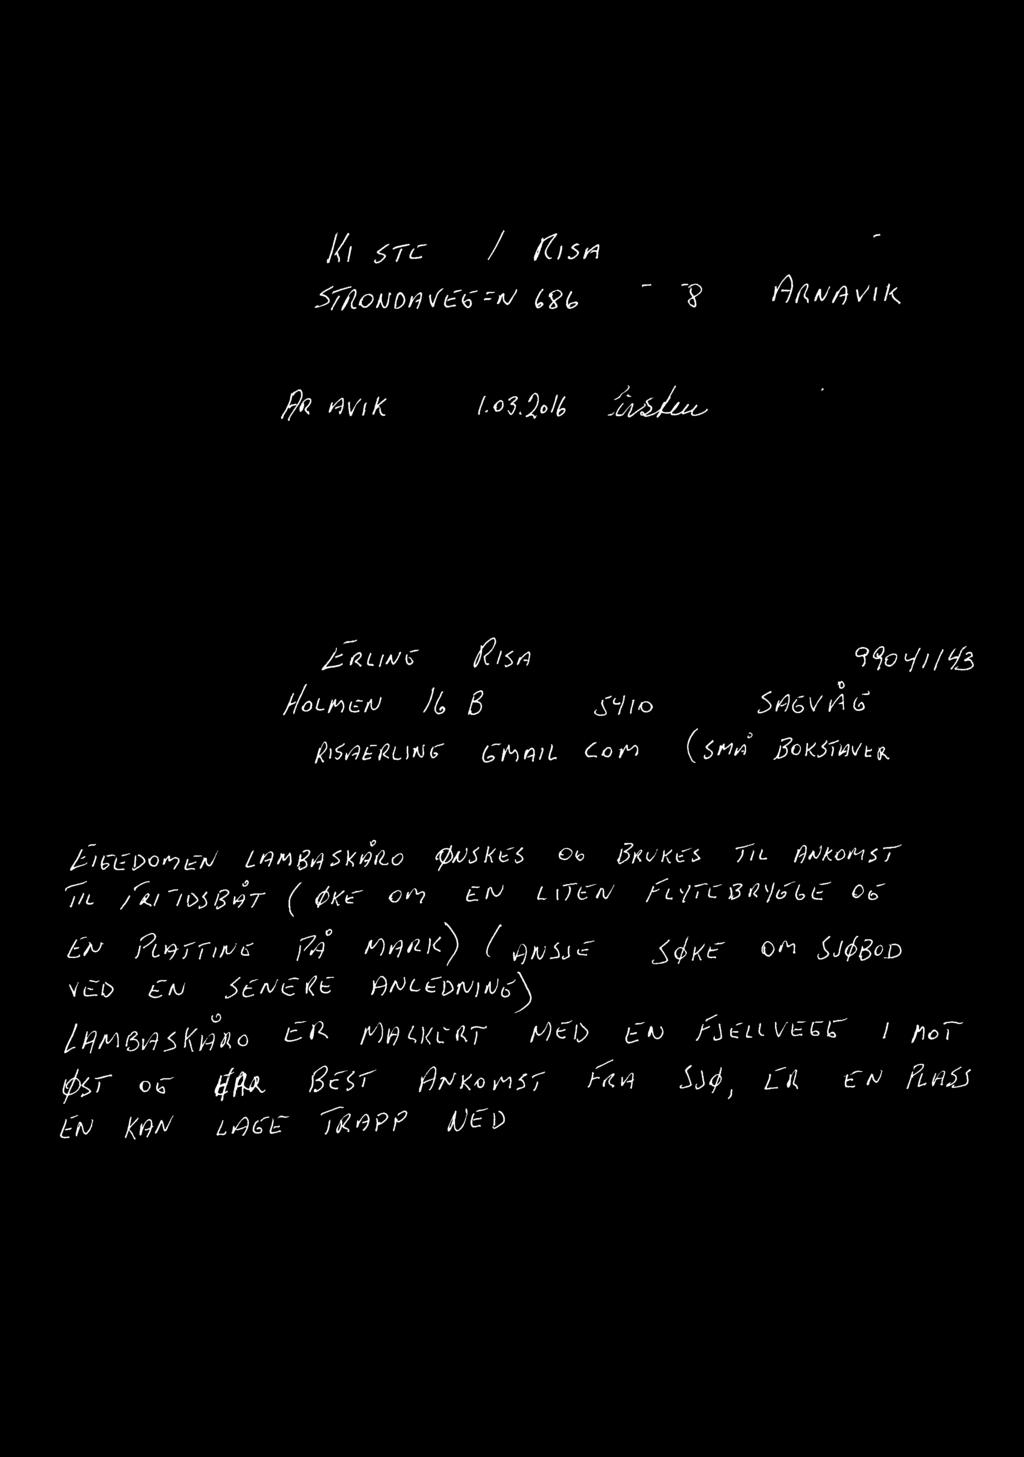 KI STE / RISA
STRONDAVEGEN 686 8 ARNAVIK
AR AVIK 1.03.2016
ERLING RISA 99041143
HOLMEN 16 B 5410 SAGVÅG
RISAERLING GMAIL COM (SMÅ BOKSTAVER
EIGEDOMEN LAMBASKÅRO ØNSKES OG BRUKES TIL ANKOMST
TIL FRITIDSBÅT ( ØKE OM EN LITEN FLYTEBRYGGE OG
EN PLATTING PÅ MARK) (ANSJE SØKE OM SJØBOD
VED EN SENERE ANLEDNING)
LAMBASKÅRO ER MALKERT MED EN FJELLVEGG I MOT
ØST OG HAR BEST ANKOMST FRA SJØ, ER EN PLASS
EN KAN LAGE TRAPP NED